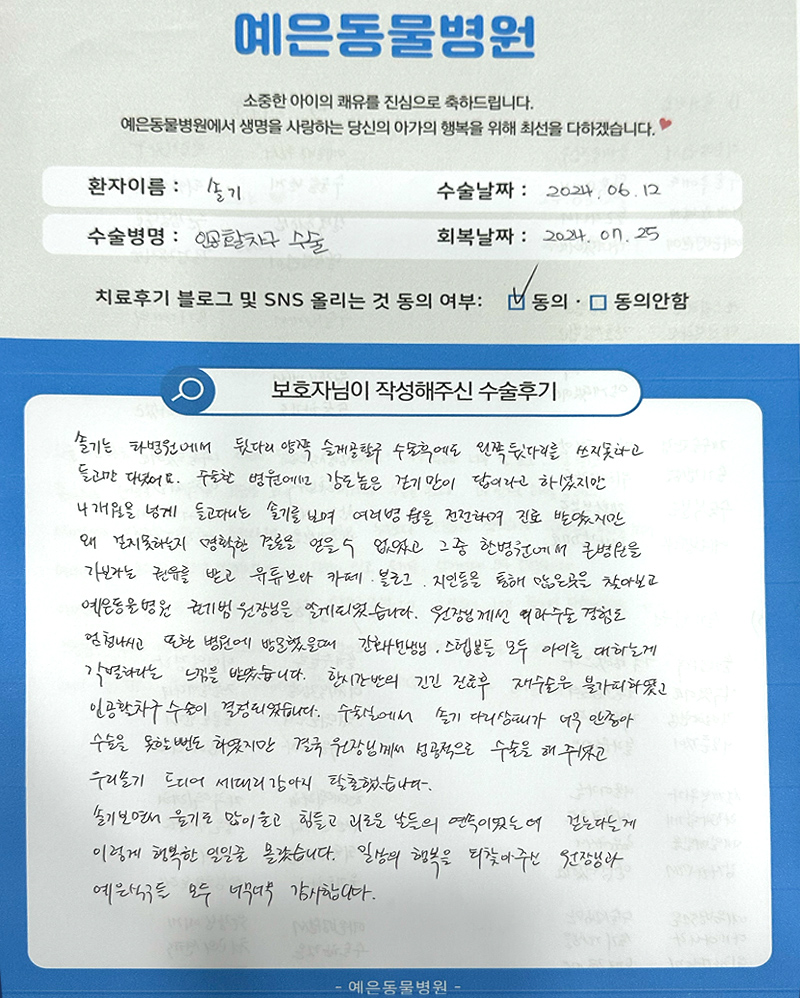 예은동물병원
소중한 아이의 쾌유를 진심으로 축하드립니다.
예은동물병원에서 생명을 사랑하는 당신의 아가의 행복을 위해 최선을 다하겠습니다.
환자이름 : 솔기 수술날짜 : 2024. 06. 12
수술병명 : 인공활차구 수술 회복날짜 : 2024. 07. 25
치료후기 블로그 및 SNS 올리는 것 동의 여부: ☑ 동의 · ☐ 동의안함
보호자님이 작성해주신 수술후기
솔기는 타병원에서 뒷다리 양쪽 슬개골탈구 수술후에도 왼쪽 뒷다리를 쓰지못하고
들고만 다녔어요. 수술한 병원에선 강도높은 걷기만이 답이라고 하셨지만
4개월을 넘게 들고다니는 솔기를 보며 여러병원을 전전하며 진료 받았지만
왜 걷지못하는지 명확한 결론을 얻을 수 없었고 그중 한병원에서 큰병원을
가보라는 권유를 받고 유튜브와 카페.블로그.지인등을 통해 많은곳을 찾아보고
예은동물병원 권기범 원장님을 알게되었습니다. 원장님께선 외과수술 경험도
엄청나시고 또한 병원에 방문했을때 간호사선생님.스텝분들 모두 아이를 대하는게
각별하다는 느낌을 받았습니다. 한시간반의 긴긴 진료후 재수술은 불가피하였고
인공활차구 수술이 결정되었습니다. 수술실에서 솔기 다리상태가 너무 안좋아
수술을 못할뻔도 하였지만 결국 원장님께서 성공적으로 수술을 해 주셨고
우리솔기 드디어 세다리강아지 탈출했습니다.
솔기보면서 울기도 많이 울고 힘들고 괴로운 날들의 연속이였는데 걷는다는게
이렇게 행복한 일일줄 몰랐습니다. 일상의 행복을 되찾아주신 원장님과
예은식구들 모두 너무너무 감사합니다.
- 예은동물병원 -